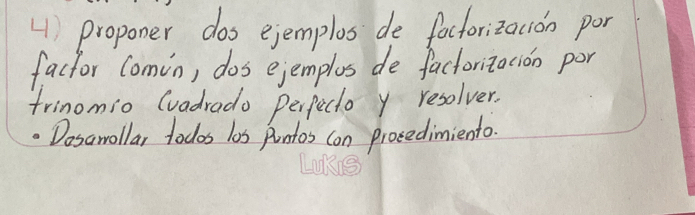 4) proponer dos ejemplos de factorización por
factor común, dos ejemplos de factorización por
trinomio Cuadrado Perfecto y resolver.
• Desarrollar todos los Puntos con procedimiento.
LUKIS